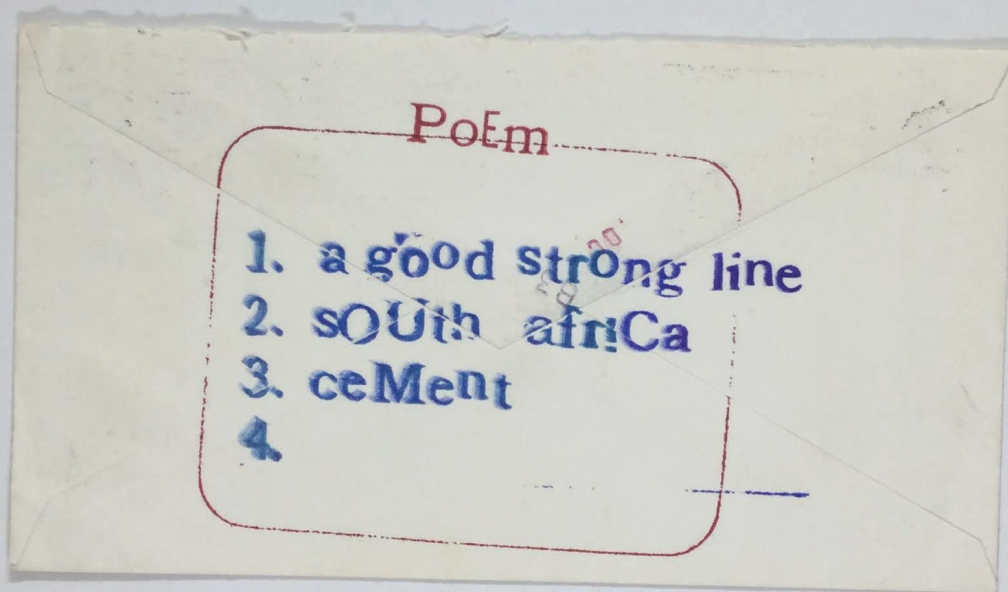 PoEm
1. a good strOng line
2. sOUth afri!Ca
3. ceMent
4.